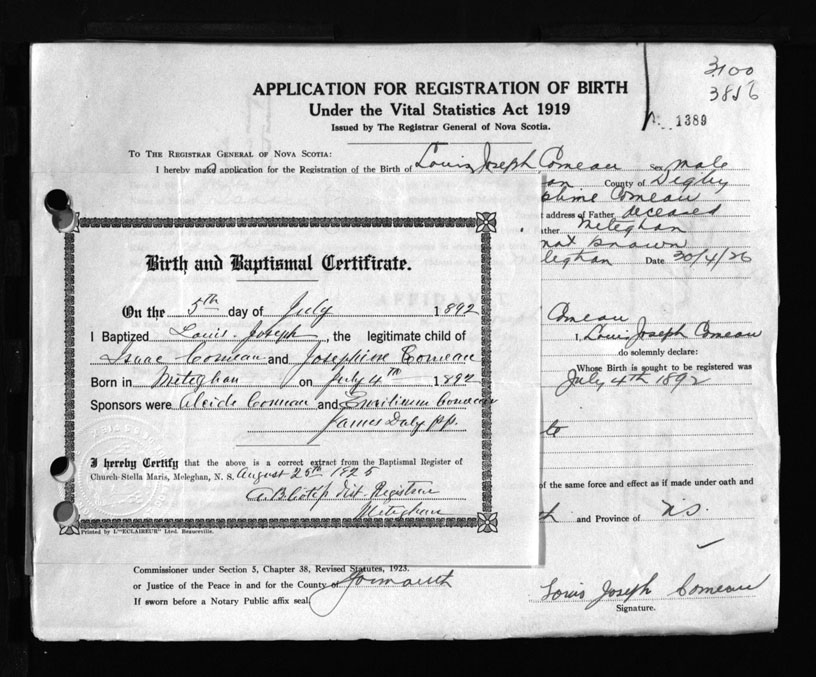 3100
3856
APPLICATION FOR REGISTRATION OF BIRTH
Under the Vital Statistics Act 1919
Issued by The Registrar General of Nova Scotia.
1389
TO THE REGISTRAR GENERAL OF NOVA SCOTIA:
I hereby make application for the Registration of the Birth of Louis Joseph Comeau male
an County of Digby
phine Comeau
address of Father deceased
ather Meteghan
not known
eghan Date 30/4/26
Birth and Baptismal Certificate.
On the 5th day of July 1892
I Baptized Louis Joseph, the legitimate child of
Isaac Comeau and Josephine Comeau
Born in Meteghan on July 4th 1892
Sponsors were Alcide Comeau and Comeau
James Daly pp.
I hereby Certify that the above is a correct extract from the Baptismal Register of
Church-Stella Maris, Meteghan, N. S. August 25th 1925
Dist. Registrar
Meteghan
Printed by L'"ECLAIREUR" Ltd. Beauceville.
Comeau
I, Louis Joseph Comeau
do solemnly declare:
Whose Birth is sought to be registered was
July 4th 1892
of the same force and effect as if made under oath and
and Province of N.S.
Commissioner under Section 5, Chapter 38, Revised Statutes, 1923.
or Justice of the Peace in and for the County of Yarmouth
If sworn before a Notary Public affix seal.
Louis Joseph Comeau
Signature.